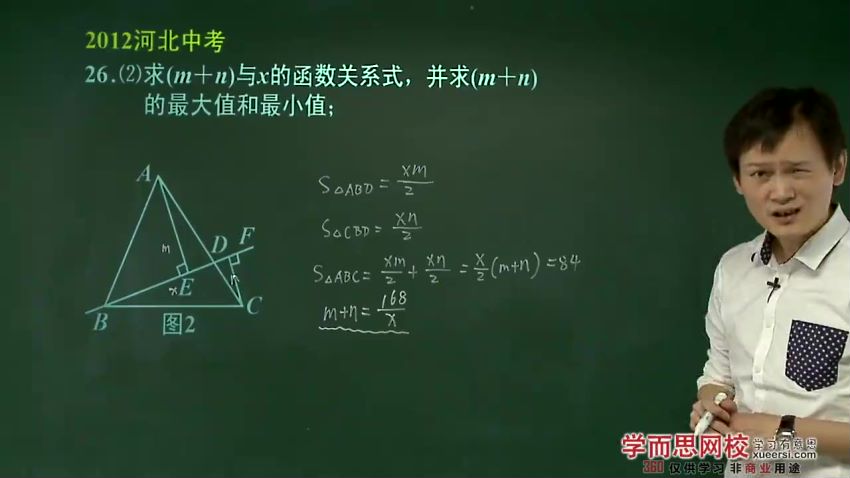 2012河北中考
26.(2)求(m+n)与x的函数关系式，并求(m+n)
的最大值和最小值；
A
m
D
F
E
x
n
B
C
图2
S△ABD = xm/2
S△CBD = xn/2
S△ABC = xm/2 + xn/2 = x/2 (m+n) = 84
m+n = 168/x
学而思网校 学习有意思
xueersi.com
360 仅供学习 非商业用途